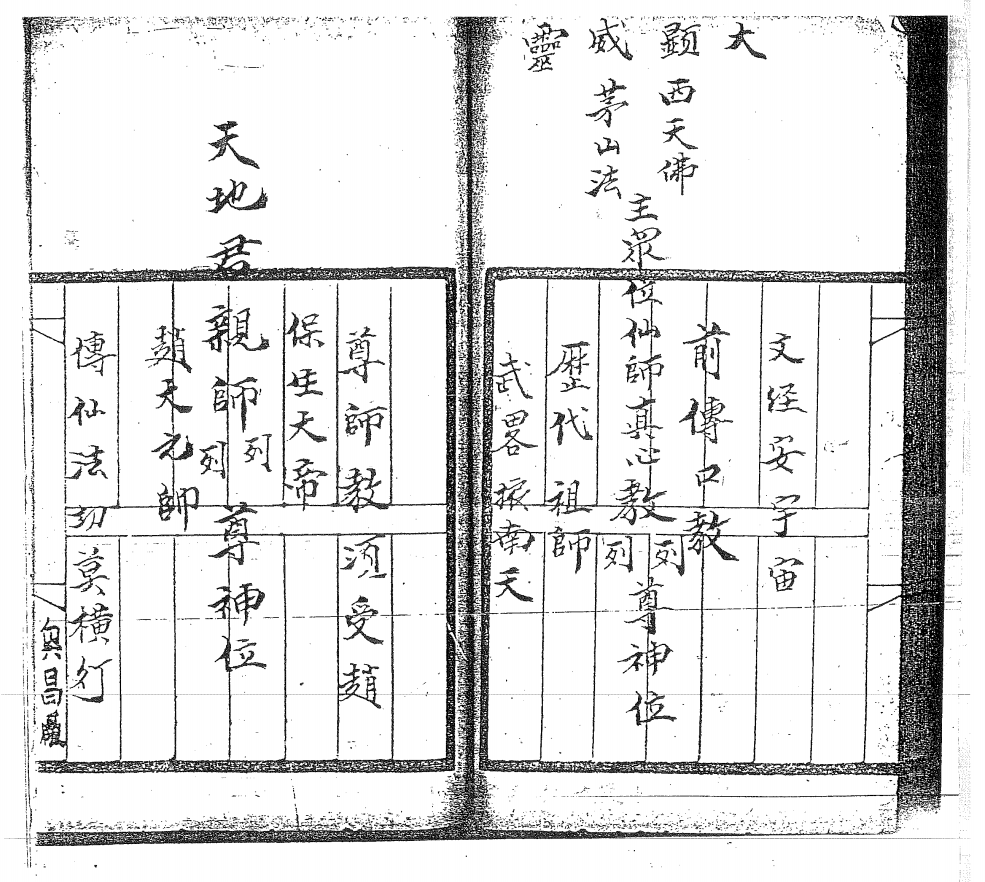 大顯威靈
文経安宇宙
西天佛
前傳口教
主眾位仙師真心教
列列
尊神位
茅山法
歷代祖師
武畧振南天
尊師教湏受趙
保生天帝
天地君親師
列列
尊神位
趙天元師
傳仙法切莫橫行
昌